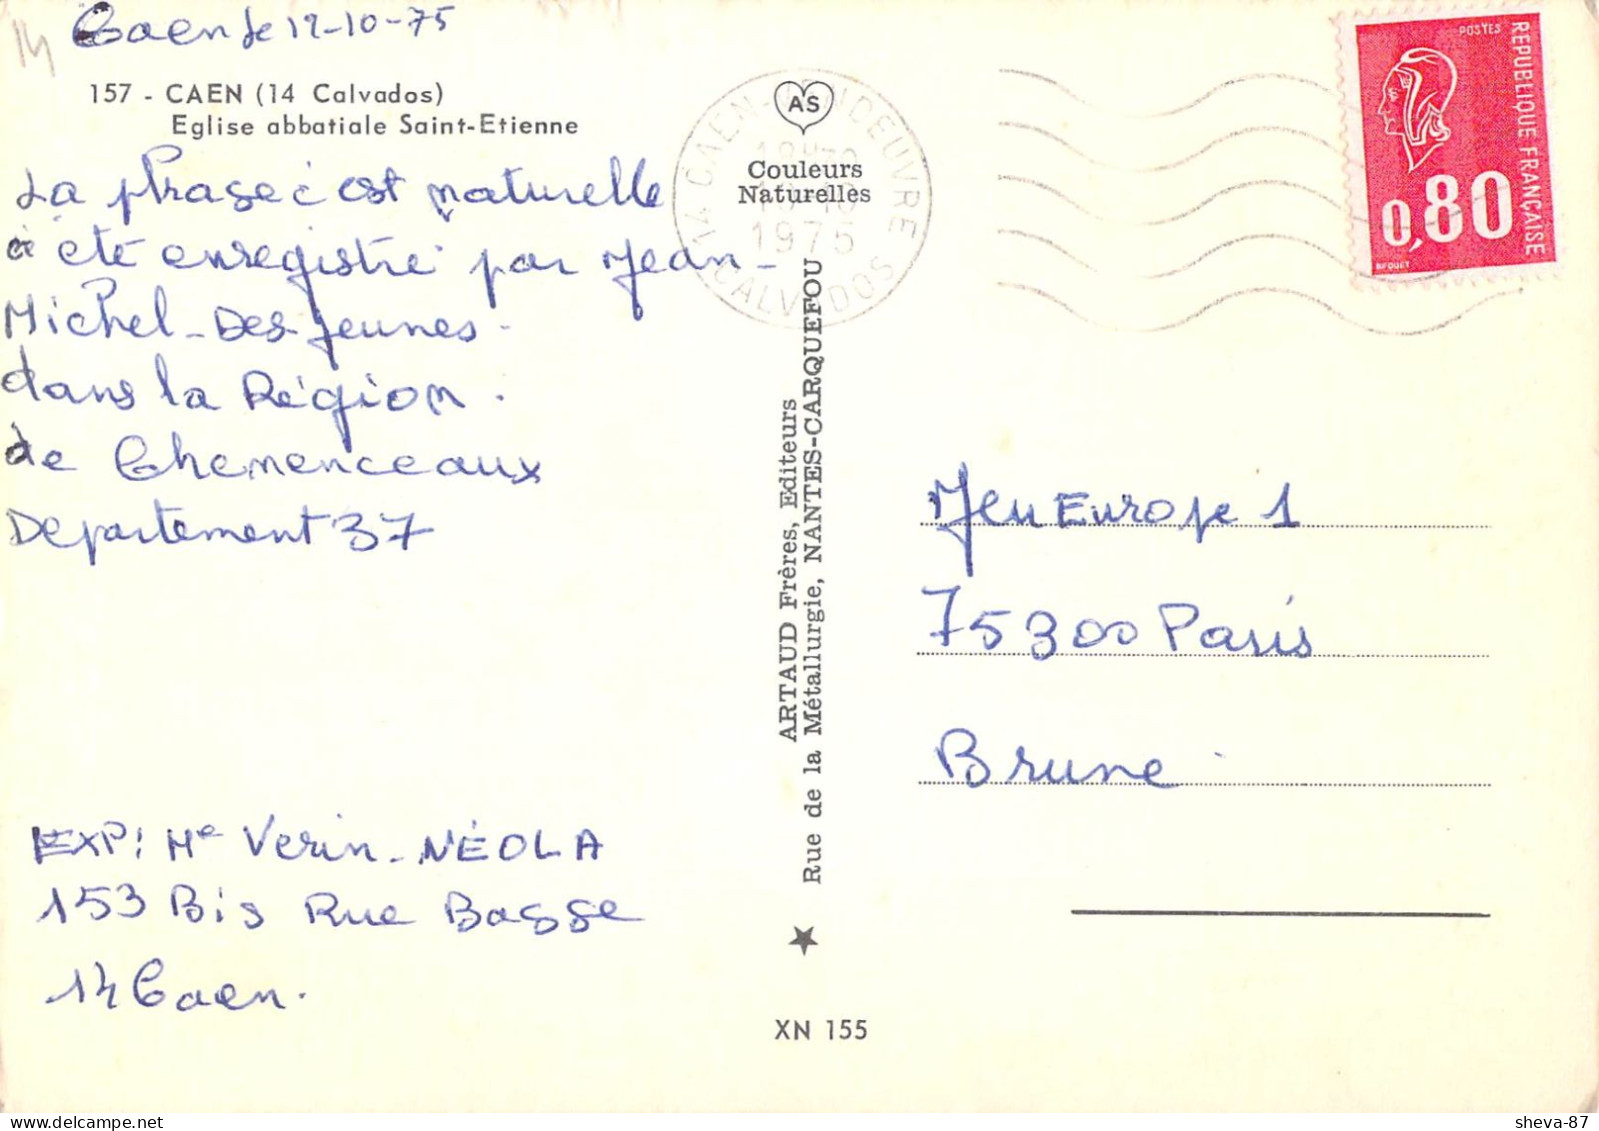 14
Caen le 12-10-75
157 - CAEN (14 Calvados)
Eglise abbatiale Saint-Etienne
La phrase c'est naturelle
a été enregistré par Jean-
Michel-Des-Jeunes-
dans la Région.
de Chemenceaux
Departement 37
EXP: Me Verin-NÉOLA
153 Bis Rue Basse
14 Caen.
AS
Couleurs
Naturelles
14 CAEN-VENDEUVRE
CALVADOS
1975
ARTAUD Frères, Editeurs
Rue de la Métallurgie, NANTES-CARQUEFOU
XN 155
POSTES
REPUBLIQUE FRANÇAISE
0,80
BEQUET
Jeu Europe 1
75300 Paris
Brune
sheva-87